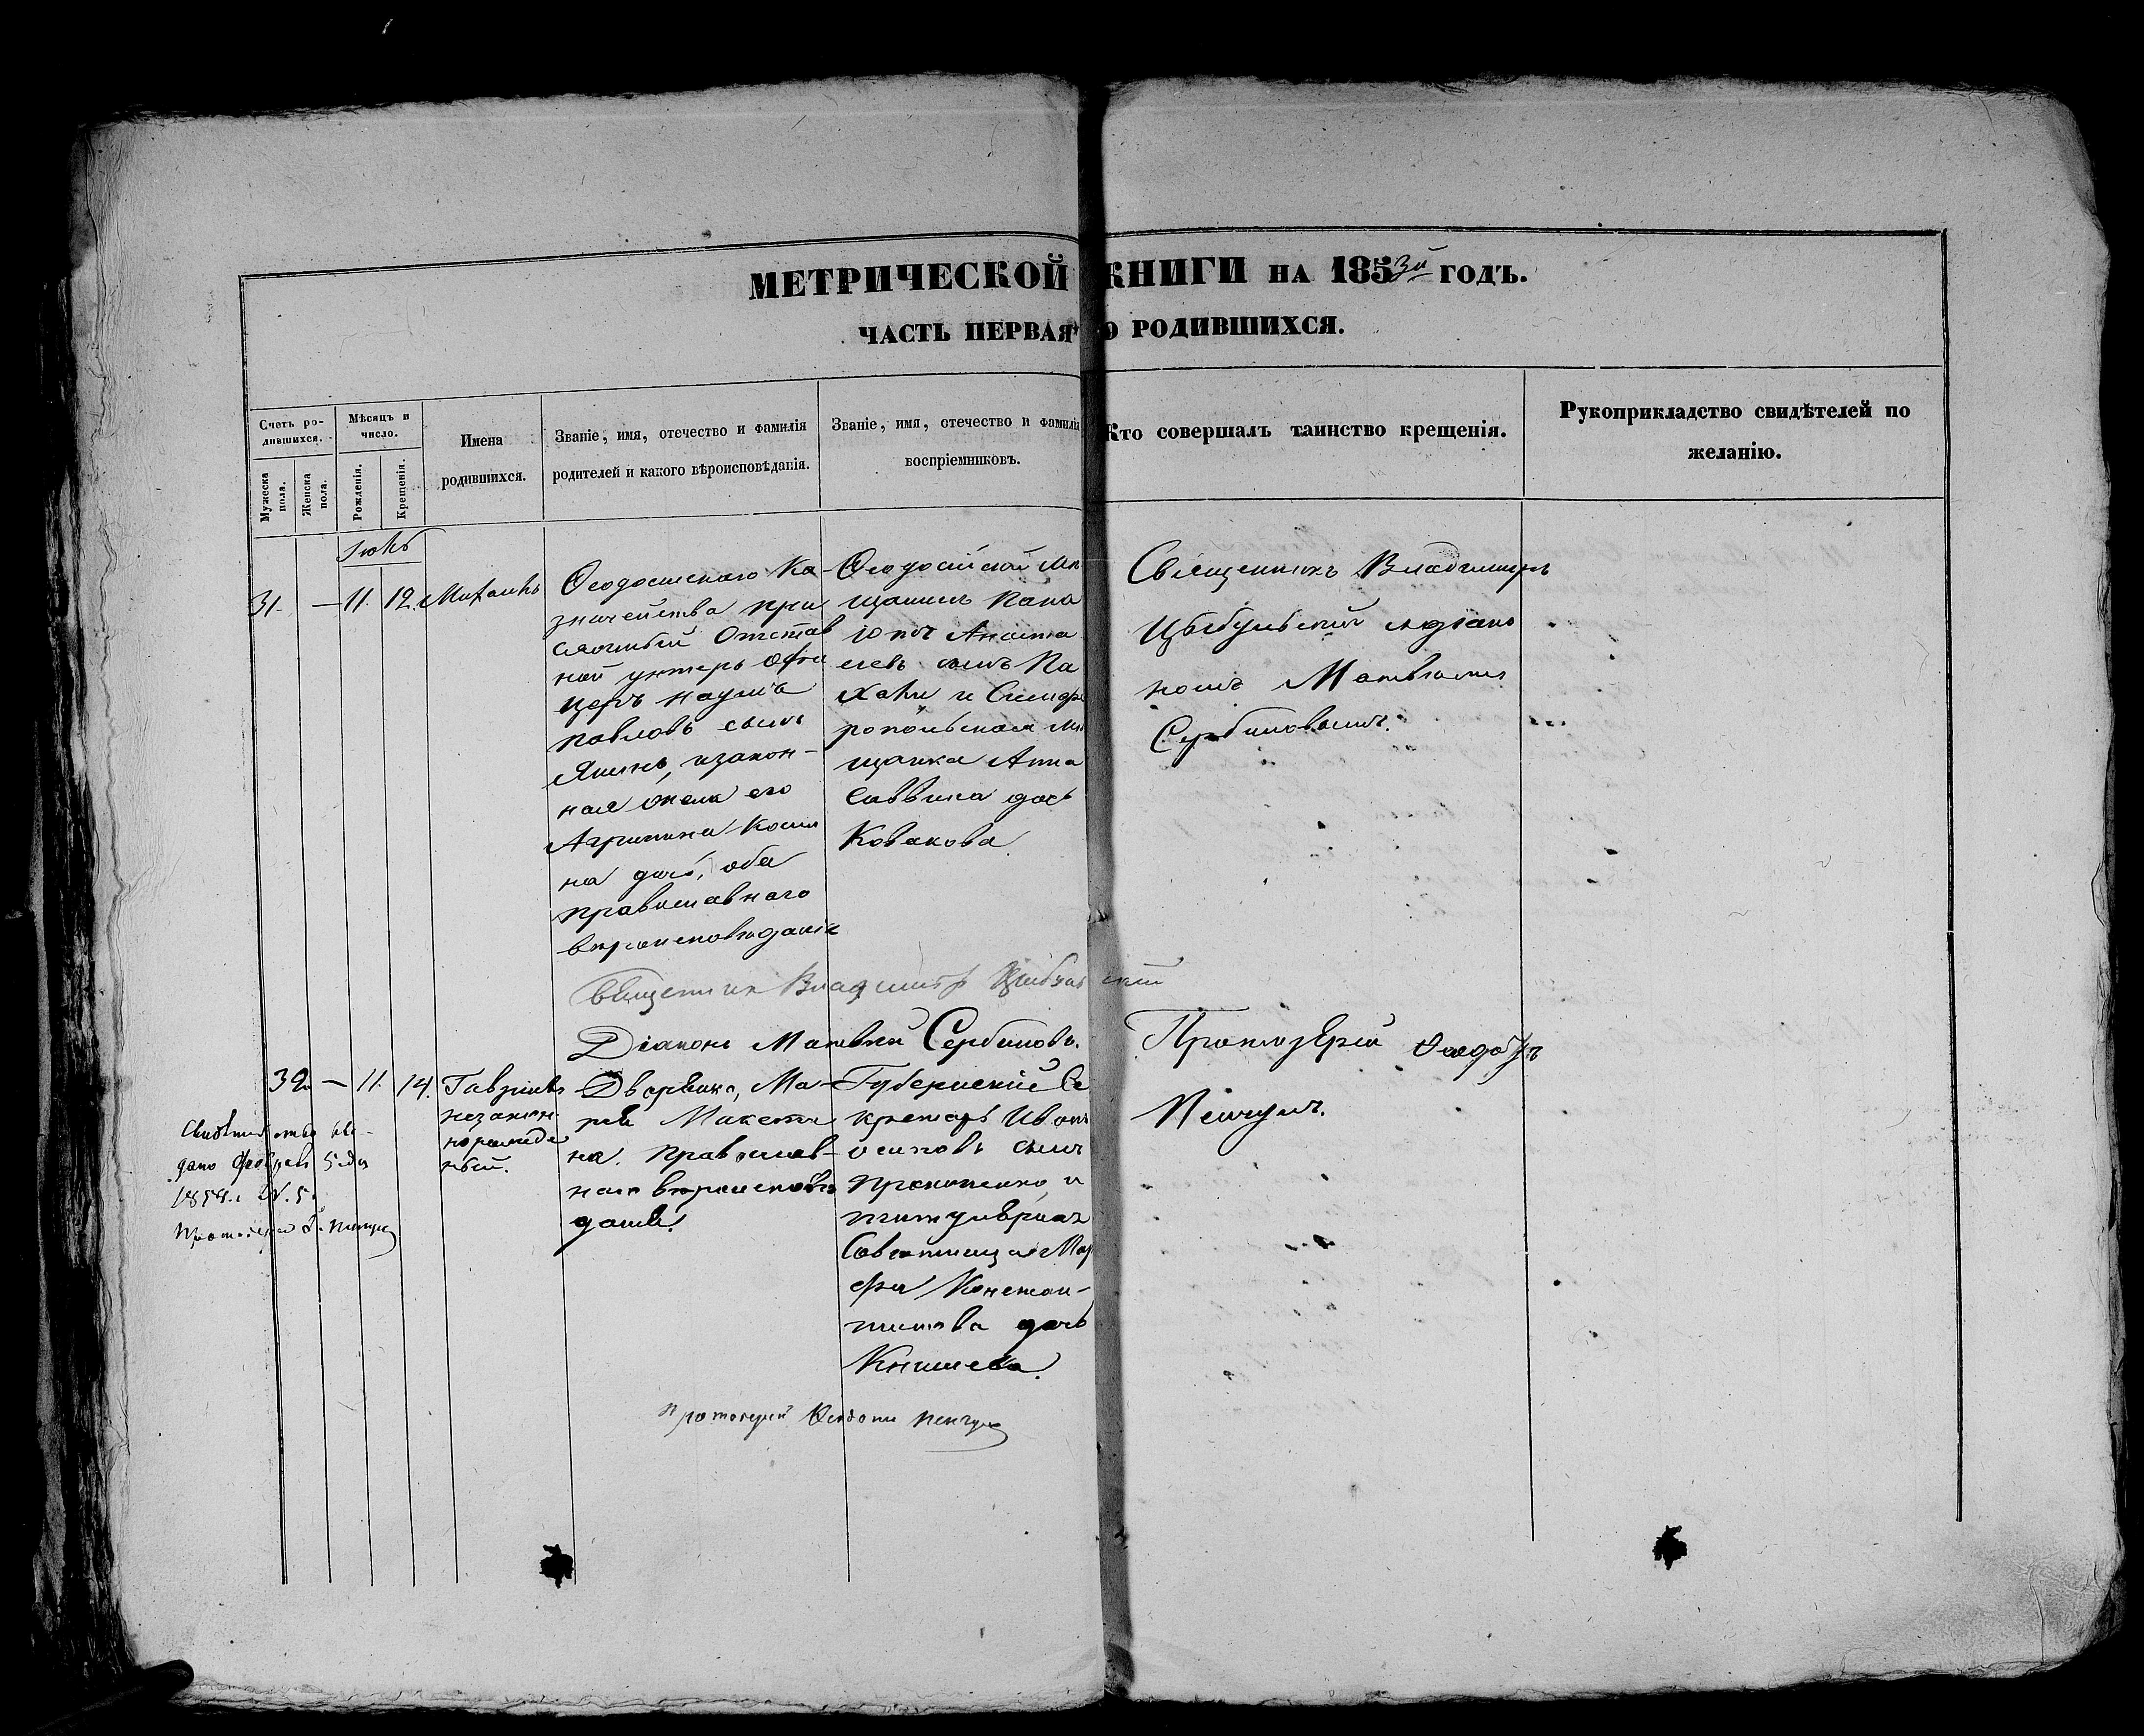 МЕТРИЧЕСКОЙ КНИГИ НА 1853й ГОДЪ.
ЧАСТЬ ПЕРВАЯ О РОДИВШИХСЯ.
Счетъ ро-
дившихся.
Мужеска
пола.
Женска
пола.
Мѣсяцъ и
число.
Рожденія.
Крещенія.
Имена
родившихся.
Званіе, имя, отечество и фамилія
родителей и какого вѣроисповѣданія.
Званіе, имя, отечество и фамилія
воспріемниковъ.
Кто совершалъ таинство крещенія.
Рукоприкладство свидѣтелей по
желанію.
31. — 11. 12. Михаилъ
Ѳеодосискаго Ка-
значейства при
сяжный Отстав
ной унтеръ офи
церъ Наумъ
Павловъ сынъ
изакон-
ная жена его
Агрипина Косми
на дочь, оба
православнаго
вѣроисповѣданія
Ѳеодосійской мѣ
щанинъ Пана
іотъ Анаста
сіевъ сынъ Па
и Симфе
ропольская мѣ
щанка Анна
Саввина доч
Ковакова
Священникъ Владимиръ
Цыбульскій съ діако
номъ Матвѣемъ
Сербиновымъ.
Священникъ Владиміръ Цыбульскій
Діаконъ Матвѣй Сербиновъ.
32. — 11. 14. Гавріилъ
незакон
норожде
ный.
Дворянка, Ма-
рія Никити
на. Православ-
наго вѣроисповѣ
данія.
Губернскій Се
кретарь Иванъ
Осиповъ сынъ
Прокопенко, и
титулярная
Совѣтница Мар
фа Констан-
тинова дочь
Книшева.
Протоіерей Ѳеодоръ
Пенчулъ.
Свидѣтельство вы-
дано Февраля 5 дня
N. 5.
Протоіерей Ѳ. Пенчулъ
Протоіерей Пенчулъ